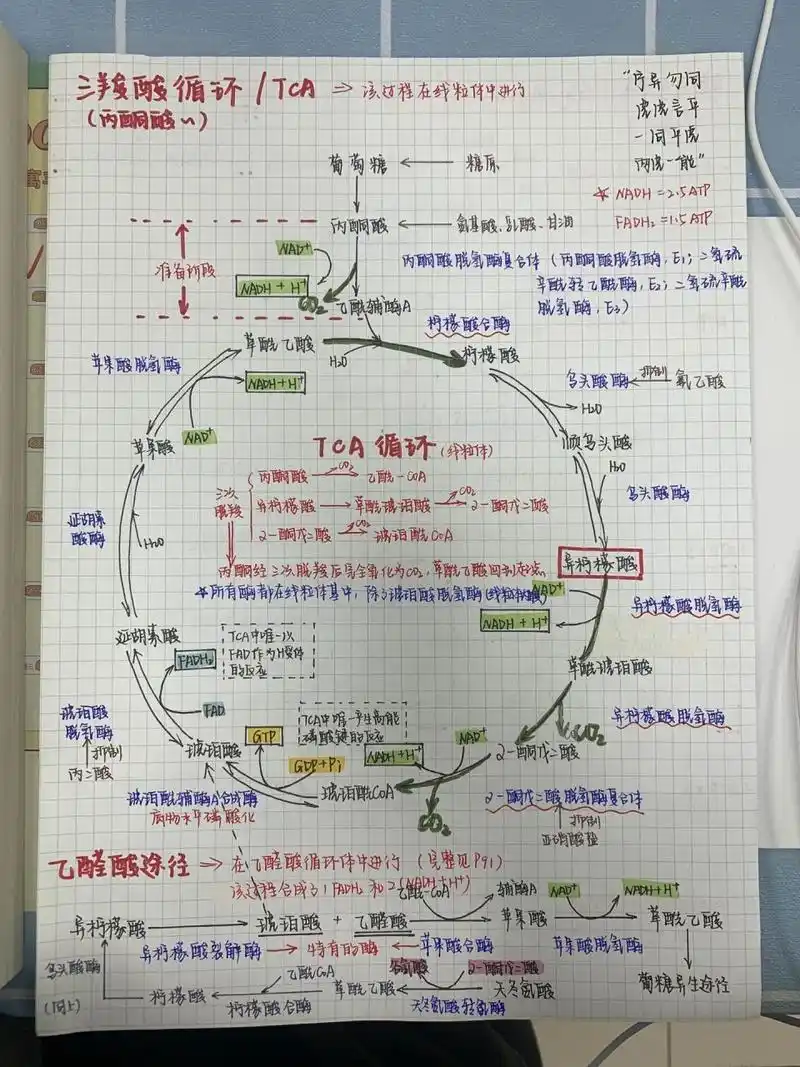 三羧酸循环/TCA ⇒ 该过程在线粒体中进行
(丙酮酸~)
"宁异勿同
虎虎言平
一同平虎
两虎一能"
葡萄糖 ← 糖原
* NADH = 2.5ATP
FADH₂ = 1.5ATP
丙酮酸 ← 氨基酸、乳酸、甘油
准备阶段
NAD⁺
NADH + H⁺
CO₂
丙酮酸脱氢酶复合体(丙酮酸脱氢酶,E₁;二氢硫
辛酰转乙酰酶,E₂;二氢硫辛酰
脱氢酶,E₃)
乙酰辅酶A
柠檬酸合酶
草酰乙酸
H₂O
柠檬酸
苹果酸脱氢酶
NADH+H⁺
乌头酸酶 ← 抑制 氟乙酸
H₂O
苹果酸
NAD⁺
TCA 循环(线粒体)
顺乌头酸
H₂O
乌头酸酶
三次
脱羧
丙酮酸 CO₂→ 乙酰-CoA
异柠檬酸 → 草酰琥珀酸 CO₂→ 2-酮戊二酸
2-酮戊二酸 CO₂→ 琥珀酰CoA
延胡索
酸酶
H₂O
丙酮经三次脱羧后完全氧化为CO₂,草酰乙酸回到起点
*所有酶都在线粒体基中,除了琥珀酸脱氢酶(线粒体内膜)
异柠檬酸
NAD⁺
NADH + H⁺
异柠檬酸脱氢酶
延胡索酸
FADH₂
FAD
TCA中唯一以
FAD作为H受体
的反应
草酰琥珀酸
异柠檬酸脱氢酶
CO₂
琥珀酸
脱氢酶
抑制
丙二酸
琥珀酸
GTP
GDP+Pi
TCA中唯一产生高能
磷酸键的反应
NADH+H⁺
NAD⁺
2-酮戊二酸
琥珀酰CoA
CO₂
琥珀酰辅酶A合成酶
底物水平磷酸化
2-酮戊二酸脱氢酶复合体
抑制
亚砷酸盐
乙醛酸途径 → 在乙醛酸循环体中进行 (完整见P91)
该过程合成了1FADH₂ 和2(NADH+H⁺)
乙酰-CoA
辅酶A
NAD⁺
NADH+H⁺
异柠檬酸 → 琥珀酸 + 乙醛酸 → 苹果酸 → 草酰乙酸
异柠檬酸裂解酶 → 特有的酶 ← 苹果酸合酶
苹果酸脱氢酶
乌头酸酶
(同上)
乙酰CoA
谷氨酸
2-酮戊二酸
柠檬酸 ← 草酰乙酸 ← 天冬氨酸
葡糖异生途径
柠檬酸合酶
天冬氨酸转氨酶